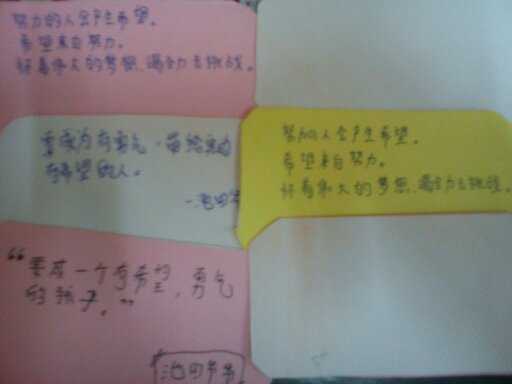 努力的人会产生希望。
希望来自努力。
怀着伟大的梦想，竭全力去挑战。
要成为有勇气，带给
有希望的人。
努力的人会产生希望。
希望来自努力。
怀着伟大的梦想，竭全力去挑战。
“要成一个有希望，勇气
的孩子。”
池田